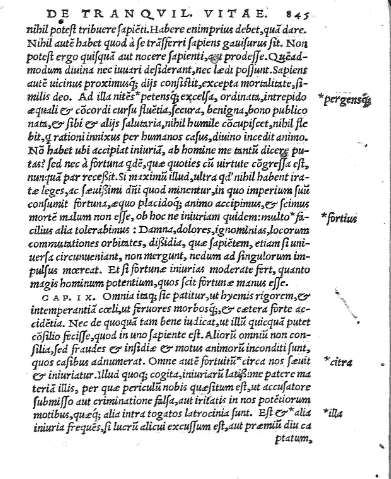 DE TRANQVIL. VITAE. 845
nihil potest tribuere sapiẽti. Habere enim prius debet, quã dare.
Nihil autẽ habet quod à se trãsferri sapiens gauisurus sit. Non
potest ergo quisquã aut nocere sapienti, aut prodesse. Quẽad-
modum diuina nec iuuari desiderant, nec lædi possunt. Sapiens
autẽ uicinus proximusq; dijs consistit, excepta mortalitate, si-
milis deo. Ad illa nitẽs *petensq; excelsa, ordinata, intrepido *pergensq;
æquali & cõcordi cursu fluẽtia, secura, benigna, bono publico
nata, & sibi & alijs salutaria, nihil humile cõcupiscet, nihil fle
bit, q rationi innixus per humanos casus, diuino incedit animo.
Nõ habet ubi accipiat iniuriã, ab homine me tantũ dicere pu-
tas? sed nec à fortuna qdẽ, quæ quoties cũ uirtute cõgressa est,
nunquã par recessit. Si maximũ illud, ultra qd' nihil habent ira-
tæ leges, ac sæuissimi dñi quod minentur, in quo imperium suũ
consumit fortuna, æquo placidoq; animo accipimus, & scimus
mortẽ malum non esse, ob hoc ne iniuriam quidem: multo *fa- *fortius
cilius alia tolerabimus: Damna, dolores, ignominias, locorum
commutationes orbitates, dißidia, quæ sapiẽtem, etiam si uni-
uersa circunueniant, non mergunt, nedum ad singulorum im-
pulsus mœreat. Et si fortunæ iniurias moderate fert, quanto
magis hominum potentium, quos scit fortunæ manus esse.
CAP. IX. Omnia itaq; sic patitur, ut hyemis rigorem, &
intemperantiã cœli, ut feruores morbosq;, & cætera forte ac-
cidẽtia. Nec de quoquã tam bene iudicat, ut illũ quicquã putet
cõsilio fecisse, quod in uno sapiente est. Aliorũ omniũ non con-
silia, sed fraudes & insidiæ & motus animorũ inconditi sunt,
quos casibus adnumerat. Omne autẽ fortuitũ *circa nos sæuit *citra
& iniuriatur. Illud quoq; cogita, iniuriarũ latißime patere ma
teriã illis, per quæ periculũ nobis quæsitum est, ut accusatore
submisso aut criminatione falsa, aut iritatis in nos potẽtiorum
motibus, quæq; alia intra togatos latrocinia sunt. Est & *alia *illa
iniuria frequẽs, si lucrũ alicui excussum est, aut præmiũ diu ca
ptatum,